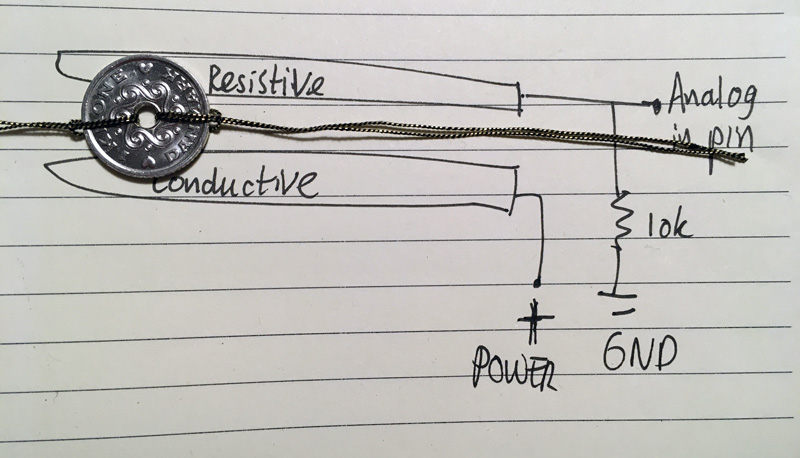 Resistive
ONE
DAN
Analog
in pin
Conductive
10k
+
POWER
GND